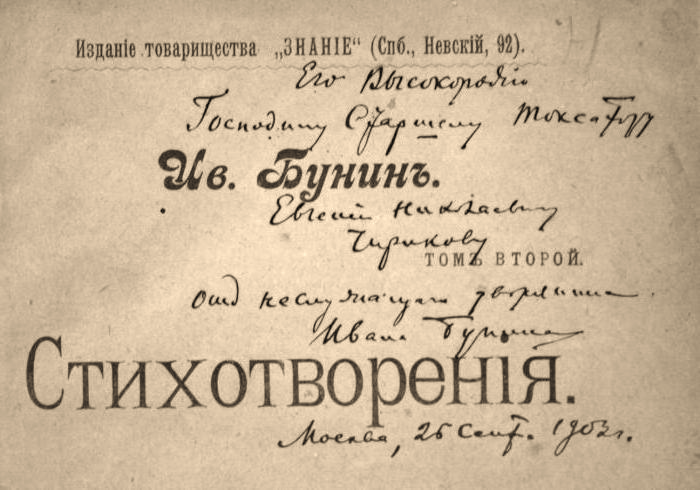 Изданіе товарищества „ЗНАНІЕ“ (Спб., Невскій, 92).
Его Высокородію
Господину Старшему Таксатору
Ив. Бунинъ.
Евгенію Николаевичу
Чирикову
ТОМЪ ВТОРОЙ.
отъ неслужащаго дворянина
Ивана Бунина
Стихотворенія.
Москва, 26 Сент. 1903 г.